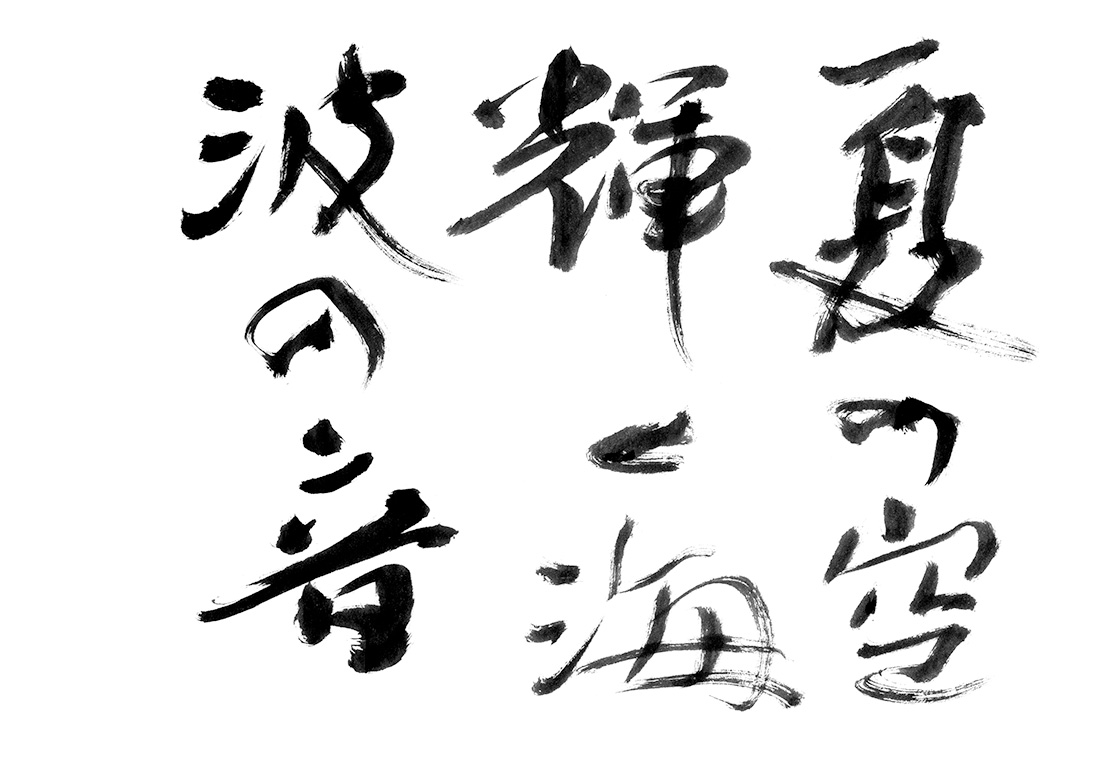 夏の空
輝く海
波の音